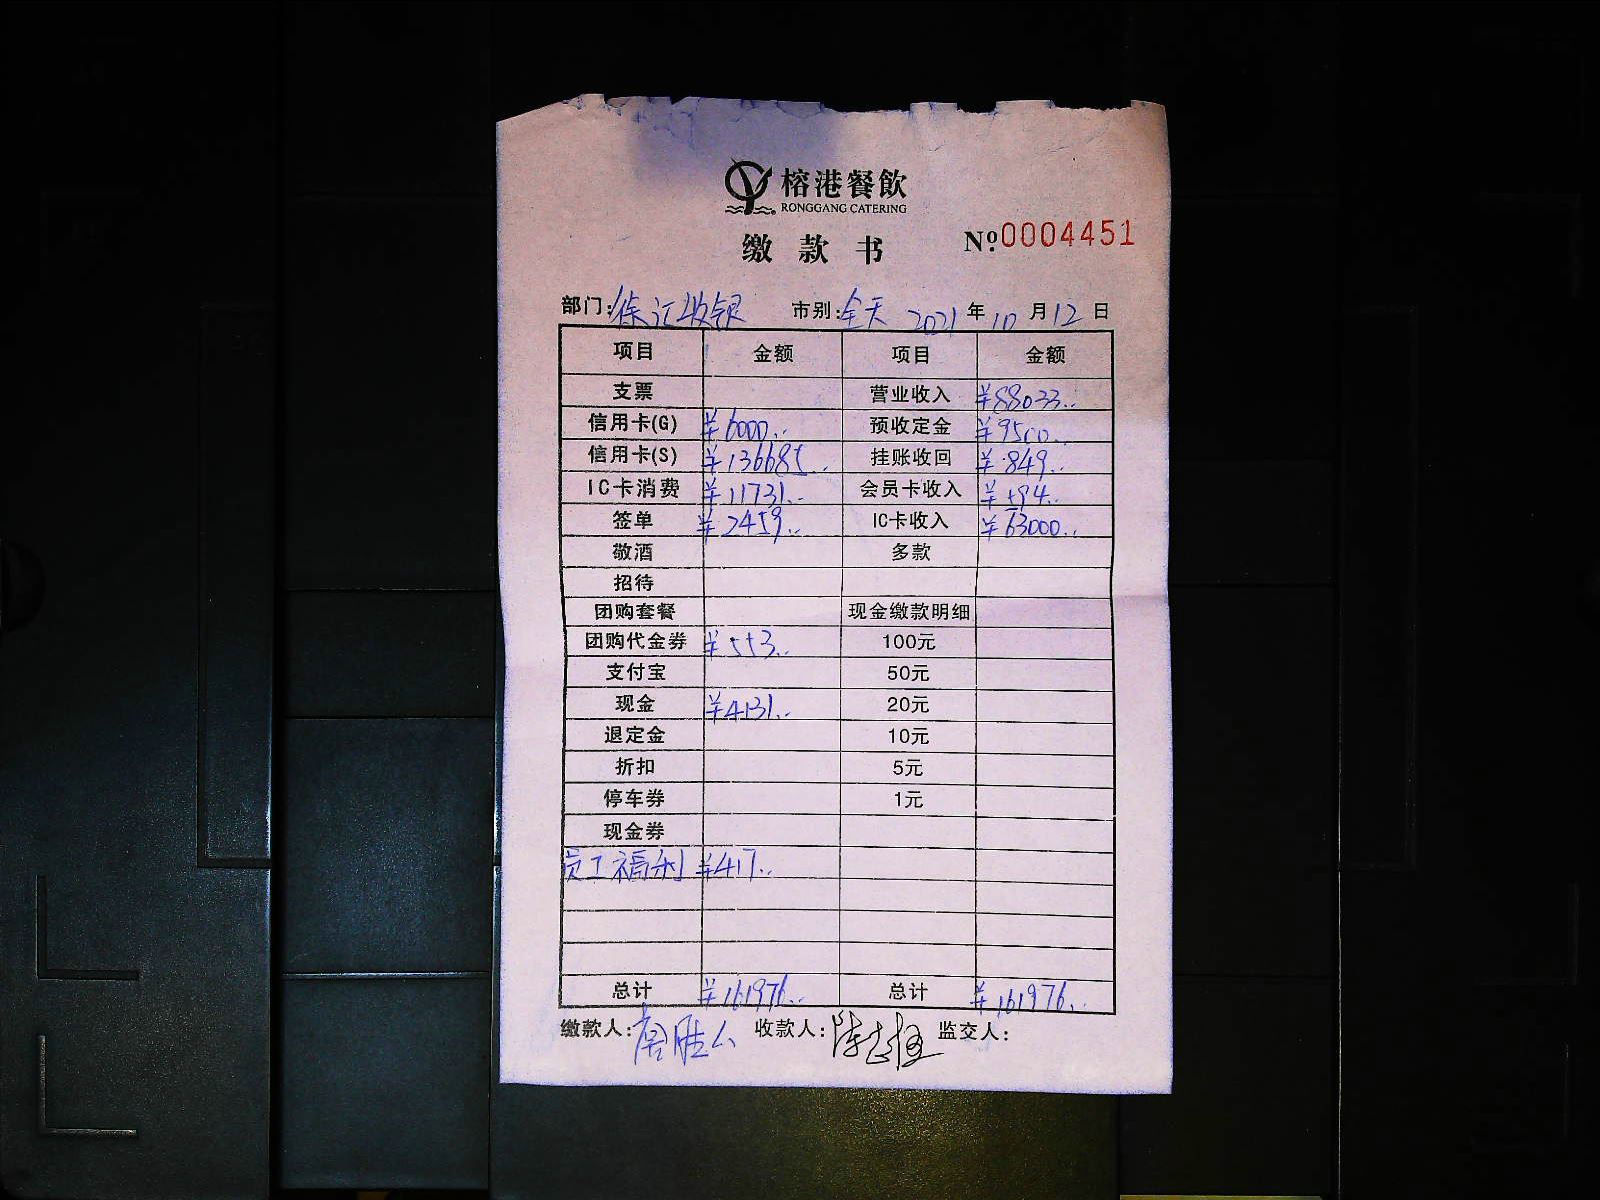 榕港餐飲
RONGGANG CATERING
缴款书 №0004451
部门:徐汇收银 市别:全天 2021年10月12日
项目 金额 项目 金额
支票 营业收入 ¥88033..
信用卡(G) ¥6000.. 预收定金 ¥9500..
信用卡(S) ¥136685.. 挂账收回 ¥849..
IC卡消费 ¥11731.. 会员卡收入 ¥594..
签单 ¥2459.. IC卡收入 ¥63000..
敬酒 多款
招待
团购套餐 现金缴款明细
团购代金券 ¥553.. 100元
支付宝 50元
现金 ¥4131.. 20元
退定金 10元
折扣 5元
停车券 1元
现金券
员工福利 ¥417..
总计 ¥161976.. 总计 ¥161976..
缴款人: 收款人: 监交人: